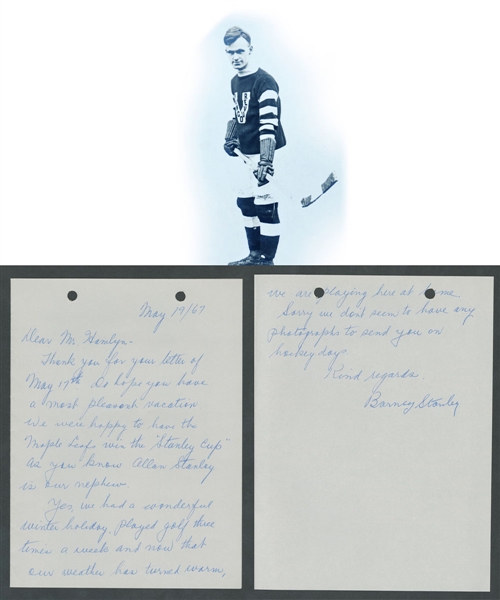 May 19/67
Dear Mr. Hamlyn-
Thank you for your letter of
May 17th Do hope you have
a most pleasant vacation
We were happy to have the
Maple Leafs win the "Stanley Cup"
As you know Allan Stanley
is our nephew.
Yes, we had a wonderful
winter holiday, played golf three
times a week and now that
our weather has turned warm,
we are playing here at home
Sorry we dont seem to have any
photographs to send you on
hockey days
Kind regards.
Barney Stanley